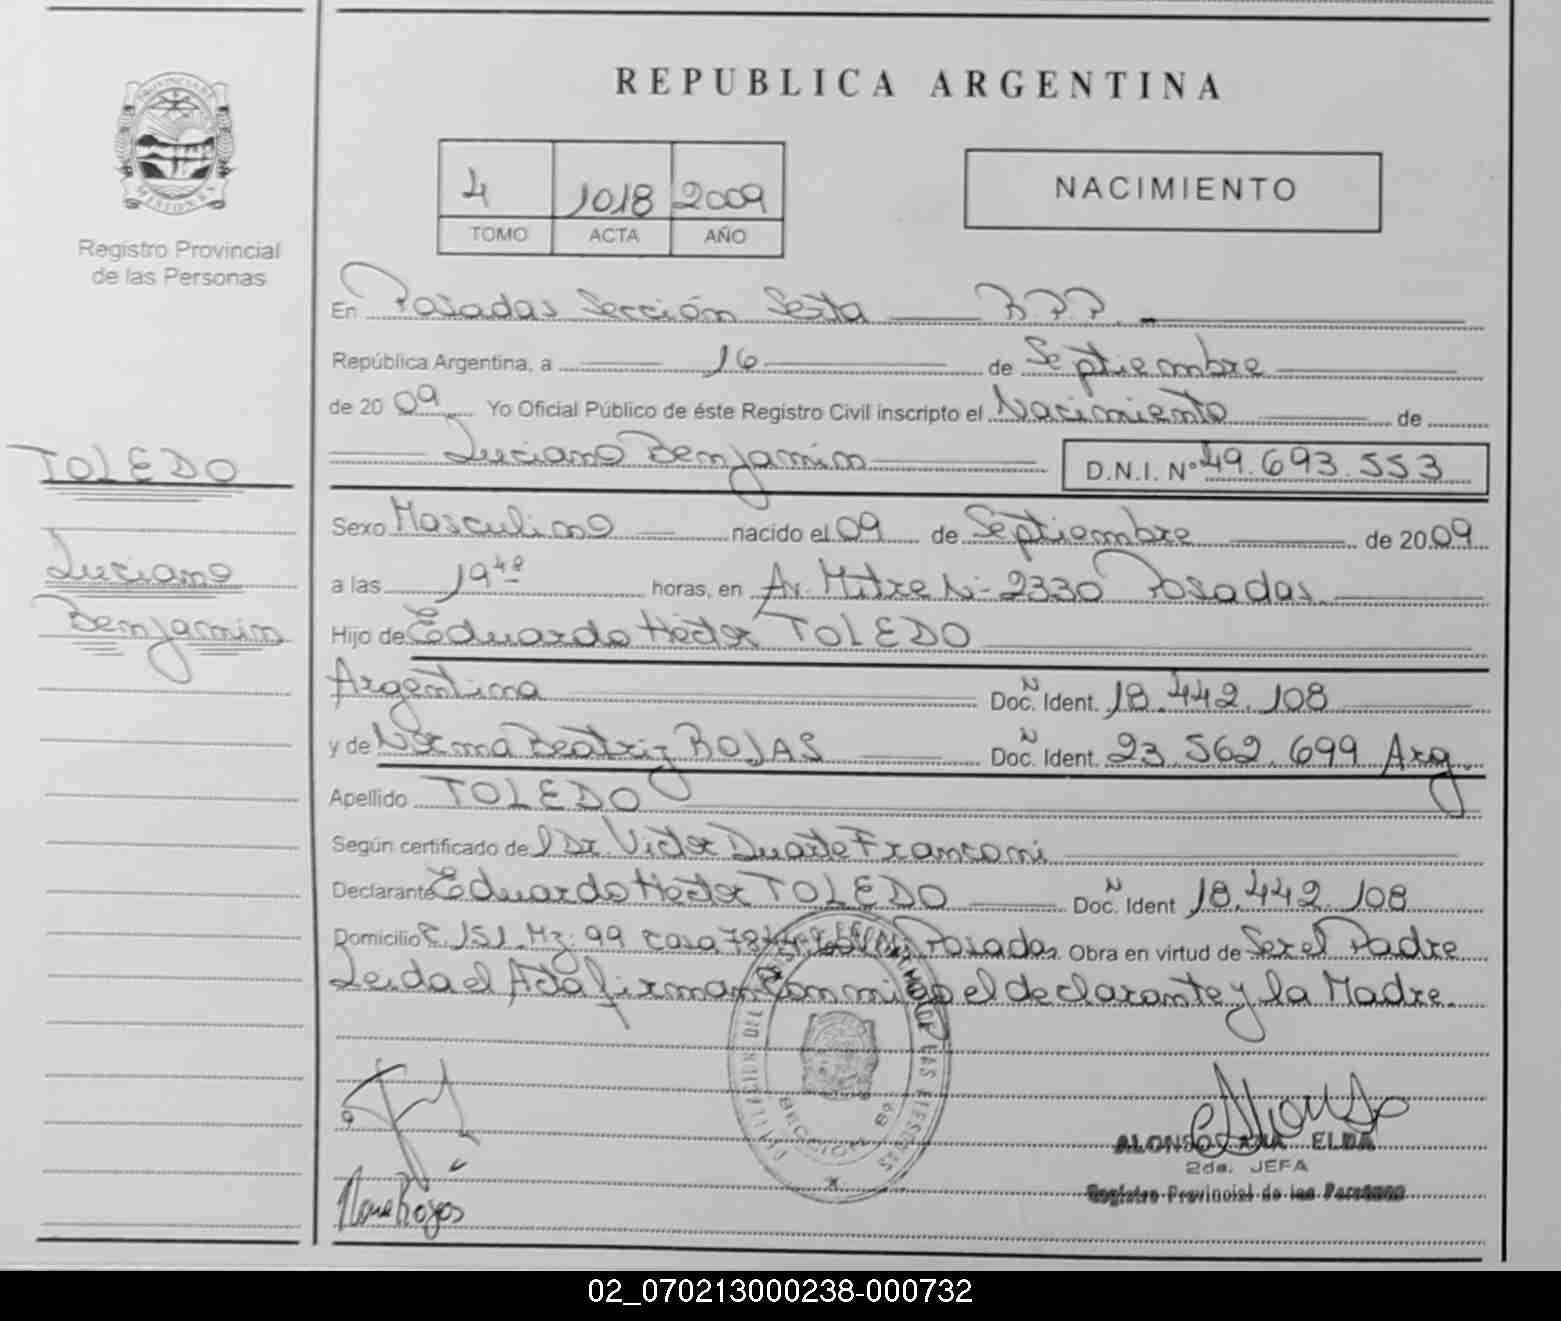 REPUBLICA ARGENTINA
PROVINCIA DE MISIONES
Registro Provincial
de las Personas
4 1018 2009
TOMO ACTA AÑO
NACIMIENTO
TOLEDO
Luciano
Benjamin
En Posadas Sección Sexta R.P.P.
República Argentina, a 16 de Septiembre
de 20 09 Yo Oficial Público de éste Registro Civil inscripto el Nacimiento de
Luciano Benjamin D.N.I. Nº 49.693.553
Sexo Masculino nacido el 09 de Septiembre de 20 09
a las 19 horas, en Av. Mitre Nº 2330 Posadas
Hijo de Eduardo Héctor TOLEDO
Argentina Doc. N Ident. 18.442.108
y de Norma Beatriz ROJAS Doc. N Ident. 23.562.699 Arg.
Apellido TOLEDO
Según certificado de l Dr. Victor Duarte Franconi
Declarante Eduardo Héctor TOLEDO Doc. N Ident 18.442.108
Domicilio C. 151. Mz. 99 Casa Posadas. Obra en virtud de Ser el Padre
Leida el Acta firman Conmigo el declarante y la Madre.
SECCION 6ª
ALONSO ANA ELDA
2da. JEFA
Registro Provincial de las Personas
02_070213000238-000732